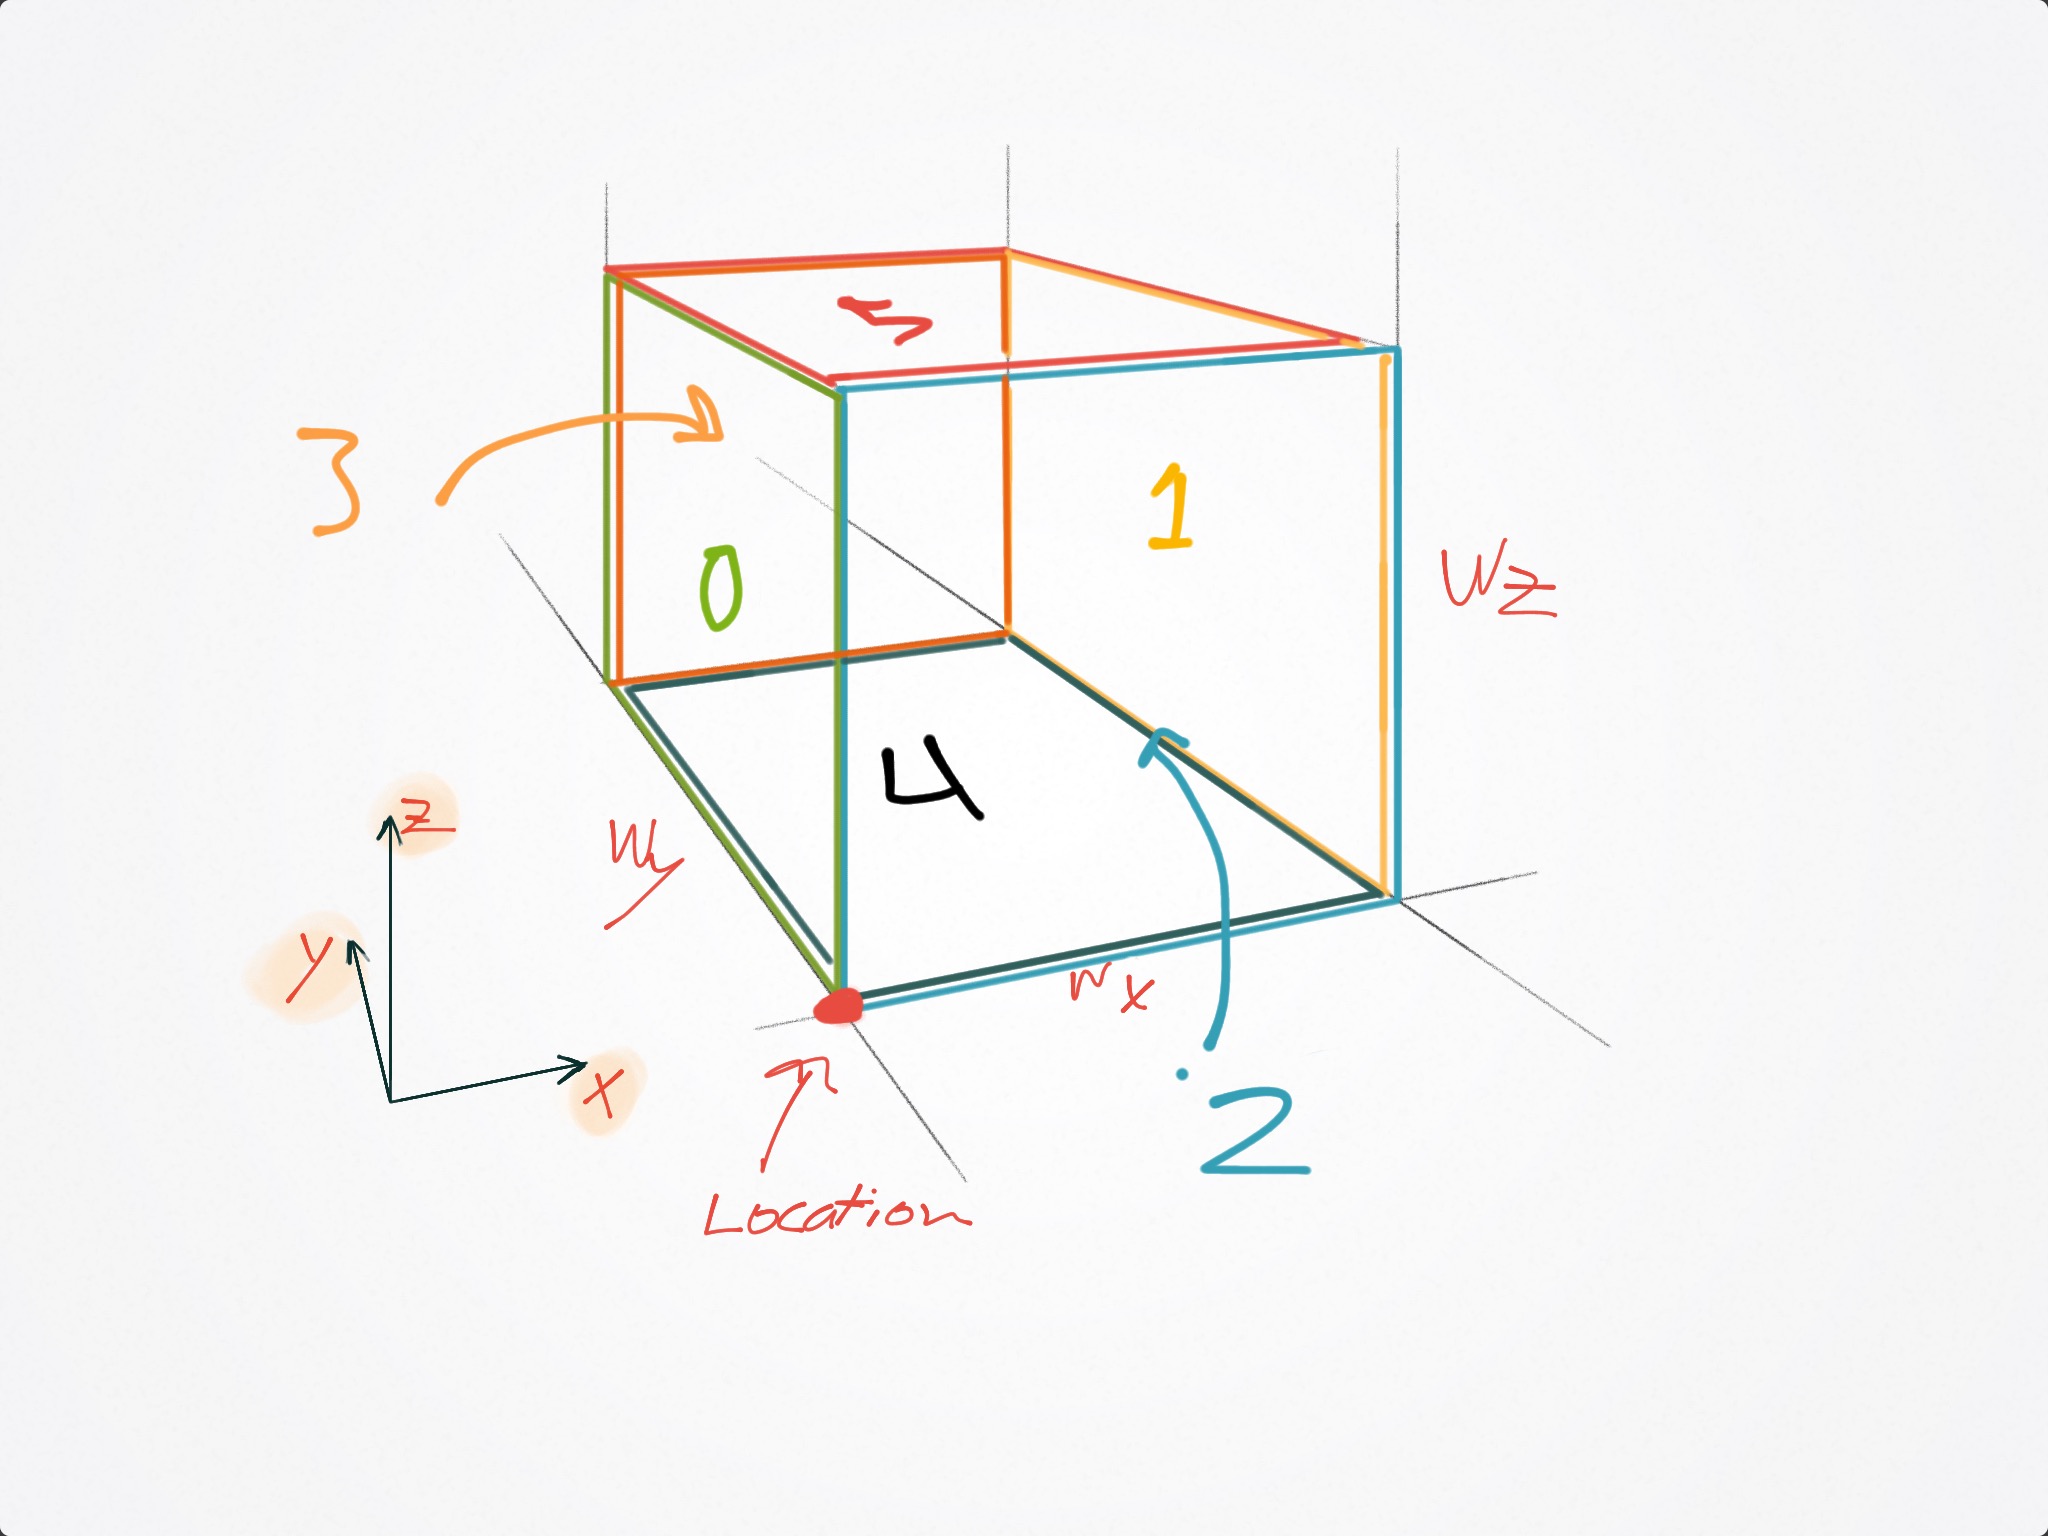 5
3
1
0
Wz
4
z
Wy
y
Wx
x
2
Location